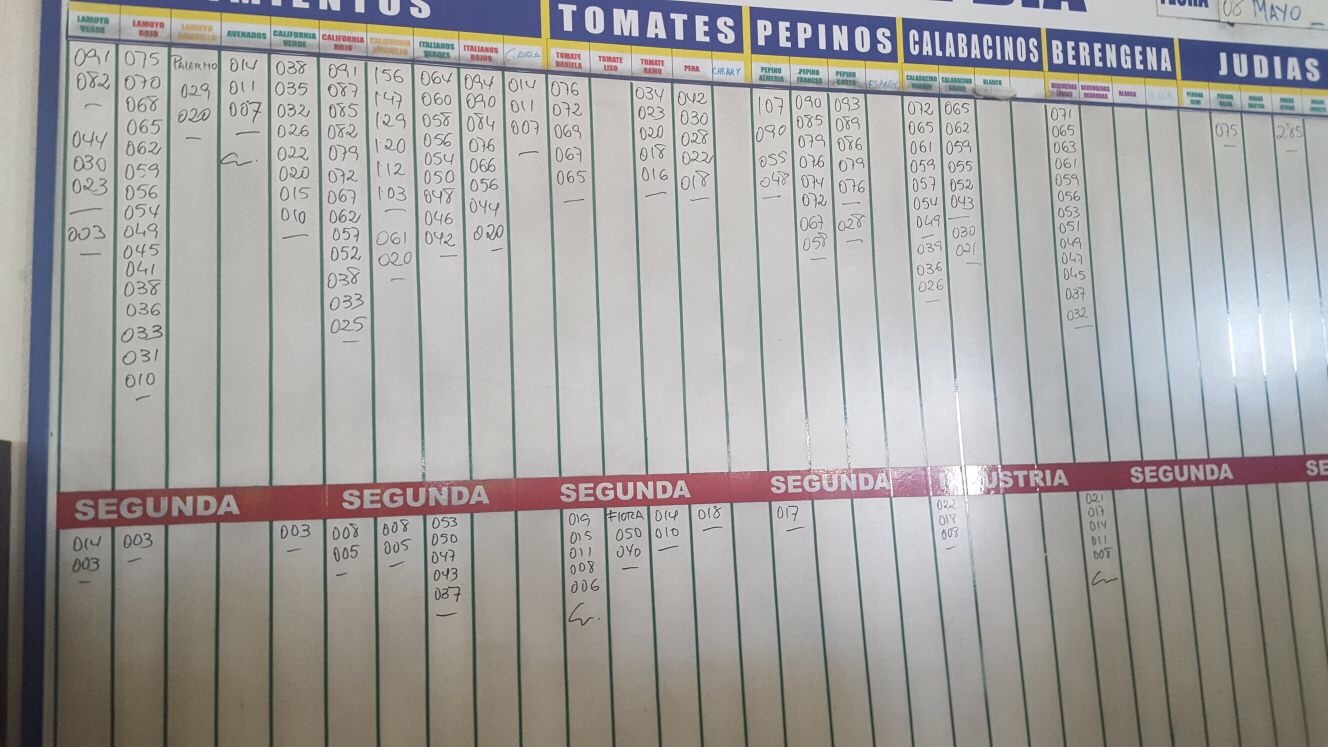 MIENTOS
TOMATES
PEPINOS
CALABACINOS
BERENGENA
JUDIAS
08 MAYO
LAMUYO VERDE
091
082
—
044
030
023
—
003
—
LAMUYO ROJO
075
070
068
065
062
059
056
054
049
045
041
038
036
033
031
010
—
LAMUYO AMARILLO
PALERMO
029
020
—
AVENADOS
014
011
007
—
CALIFORNIA VERDE
038
035
032
026
022
020
015
010
—
CALIFORNIA ROJO
091
087
085
082
079
072
067
062
057
052
038
033
025
—
CALIFORNIA AMARILLO
156
147
129
120
112
103
—
061
020
—
ITALIANOS VERDES
064
060
058
056
054
050
048
046
042
—
ITALIANOS ROJOS
094
090
084
076
066
056
044
020
—
014
011
007
—
TOMATE DANIELA
076
072
069
067
065
—
TOMATE LISO
TOMATE RAMO
034
023
020
018
016
—
PERA
042
030
028
022
018
—
CHERRY
PEPINO ALMERIA
107
090
055
048
—
PEPINO FRANCES
090
085
079
076
074
072
—
067
058
—
PEPINO CORTO
093
089
086
079
076
—
028
—
CALABACINO
072
065
061
059
057
054
049
—
039
036
026
—
CALABACINO GORDO
065
062
059
055
052
043
—
030
021
—
BLANCO
BERENGENAS LARGAS
071
065
063
061
059
056
053
051
049
047
045
037
032
—
BERENGENAS REDONDAS
BLANCA
075
—
285
—
SEGUNDA
SEGUNDA
SEGUNDA
SEGUNDA
INDUSTRIA
SEGUNDA
SE
014
003
—
003
—
003
—
008
005
—
008
005
—
053
050
047
043
037
—
019
015
011
008
006
FIORA
050
040
—
014
010
—
018
—
017
—
022
018
008
—
021
017
014
011
008